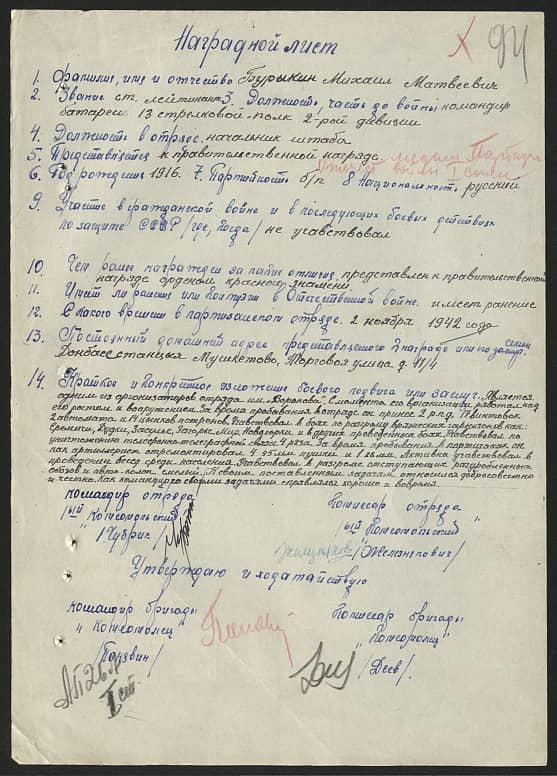 Наградной лист
X 94
1. Фамилия, имя и отчество Бурыкин Михаил Матвеевич
2. Звание ст. лейтинант 3. Должность, часть до войны командир
батареи 13 стрелковой полк 2-рой дивизии
4. Должность в отряде начальник штаба
5. Представляется к правительственной награде
медаль
I степени
6. Год рождения 1916. 7. Партийность б/п 8 Национальность русский
9. Участие в гражданской войне и в последующих боевых действиях
по защите СССР /где, когда/ не учавствовал
10. Чем ранее награжден за какие отличия, представлен к правительственной
награде орденом красного знамени.
11. Имеет ли ранения или контузии в Отечественной войне. имеет ранение
12. С какого времени в партизанском отряде. 2 ноября 1942 года
13. Постоянный домашний адрес представляемого к награде или его семьи
Донбасс станция Мушкетово, Торговая улица д 11/4
14. Краткое и конкретное изложение боевого подвига или заслуг. Является
одним из организаторов отряда им. Воранова. С момента его организации работал над
его ростом и вооружением. За время пребывания в отряде он принес 2 р.п.д. 17 винтовок
2 автомата и 14 ящиков патронов. Учавствовал в боях по разгрому вражеских гарнизонов как:
и в других проведенных боях. Учавствовал по
уничтожению телефонно-телеграфной связи 4 раза. За время пребывания в партизанах он
как артилерист отремонтировал 4 45 мм пушки и 1 86 мм. Активно учавствовал в
проведении бесед среди населения. Учавствовал в разгроме отступающих разгромленных
обозов и авто-колон смелый. К своим поставленным задачам относился добросовестно
и честно. Как командир со своими задачами справлялся хорошо и вовремя.
Командир отряда
Комиссар отряда
1ый "Комсомольский"
1ый "Комсомольский"
/Чубрик/
/Железнякович/
Утверждаю и ходатайствую
Командир бригады
Комиссар бригады
"Комсомолец"
"Комсомолец"
/Деев/
I ст.